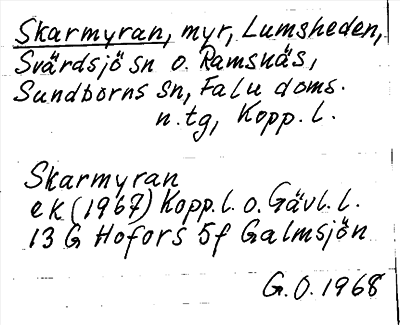 Skarmyran, myr, Lumsheden,
Svärdsjö sn o. Ramsnäs,
Sundborns sn, Falu doms.
n.tg, Kopp.l.
Skarmyran
ek (1967) Kopp.l. o. Gävl.l.
13 G Hofors 5f Galmsjön
G.O. 1968